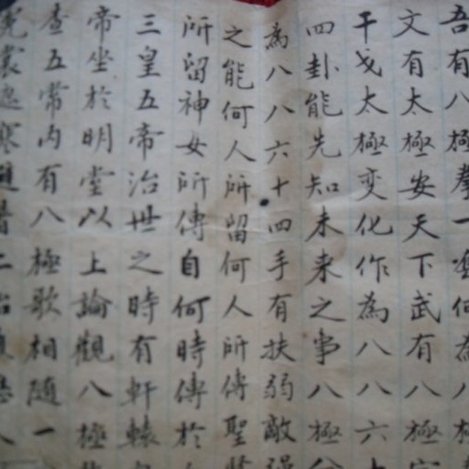 吾有八極拳一何為八
文有太極安天下武有八極
干戈太極変化作為八八六十
四卦能先知未来之事八極分
為八八六十四手有扶弱敵强
之能何人所留何人所傳聖
所留神女所傳自何時傳於
三皇五帝治世之時有軒轅
帝坐於明堂以上論觀八極
查五常内有八極歌相随一